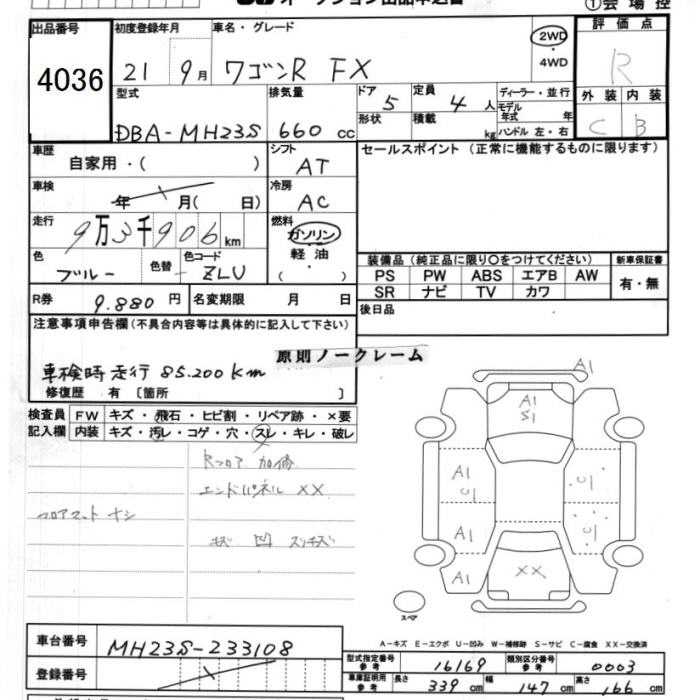 ①会場控
出品番号 初度登録年月 車名・グレード 評価点
4036 21 9月 ワゴンR FX 2WD・4WD R
型式 排気量 ドア 5 定員 4人 ディーラー・並行 外装 内装
DBA-MH23S 660cc 形状 積載 kg モデル年式 年 ハンドル 左・右 C B
車歴 自家用・( ) シフト AT セールスポイント（正常に機能するものに限ります）
車検 年 月( 日) 冷房 AC
走行 9万3千906km 燃料 ガソリン
色 ブルー 色替 色コード ZLU 軽油 ( )
装備品（純正品に限り○をつけてください） 新車保証書
PS PW ABS エアB AW 有・無
SR ナビ TV カワ
R券 9.880円 名変期限 月 日 後日品
注意事項申告欄(不具合内容等は具体的に記入して下さい)
原則ノークレーム
車検時走行 85.200km
修復歴 有 〔箇所 〕
検査員 FW キズ・飛石・ヒビ割・リペア跡・×要
記入欄 内装 キズ・汚レ・コゲ・穴・スレ・キレ・破レ
Rフロア 加修
エンドパネル ××
フロアマット ナシ
キズ 凹 スリキズ
A1
A1
S1
A1
U1
U1
A1
U1
A1
××
スペア
A-キズ E-エクボ U-凹み W-補修跡 S-サビ C-腐食 XX-交換済
車台番号 MH23S-233108
型式指定番号 参考 16169 類別区分番号 参考 0003
登録番号
車庫証明用 参考 長さ 339cm 幅 147cm 高さ 166cm